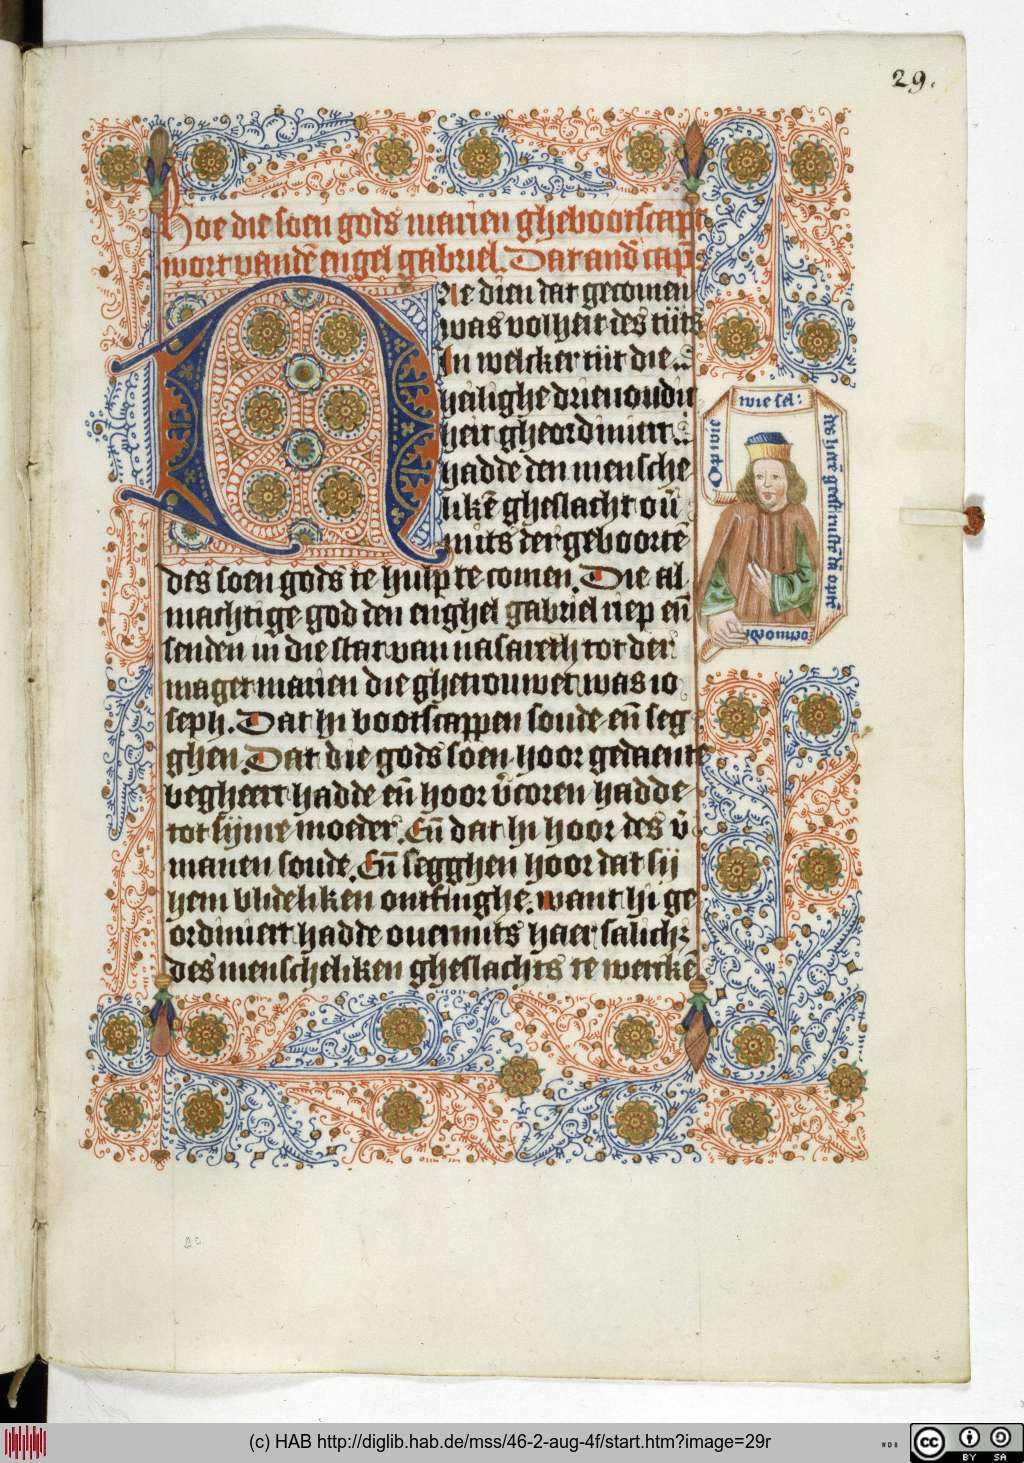 29.
Hoe die soen gods marien ghebootscapt
wort vandē engel gabriel. Dat and cap̄
Nae dien dat gecomen
was volheit des tiits
In welcker tiit die
heilighe drievoudic
heit gheordiniert
hadde den mensche
likē gheslacht oū
mits der geboorte
des soen gods te hulp te comen. Die al
machtige god den enghel gabriel riep eñ
senden in die stat van nasareth tot der
maget marien die ghetrouwet was io
seph. Dat hi bootscappen soude eñ seg
ghen. Dat die gods soen hoor gedaente
begheert hadde eñ hoor v̄coren hadde
tot sijnre moeder. Eñ dat hi hoor des v̄
manen soude. Eñ segghen hoor dat sij
hem blideliken ontfinghe. want hi ge
ordiniert hadde overmits haer
des menscheliken gheslachts te werckē
Op wie
wie sel:
des herē geest rusten dā op tē
(c) HAB http://diglib.hab.de/mss/46-2-aug-4f/start.htm?image=29r
WDB
cc BY SA